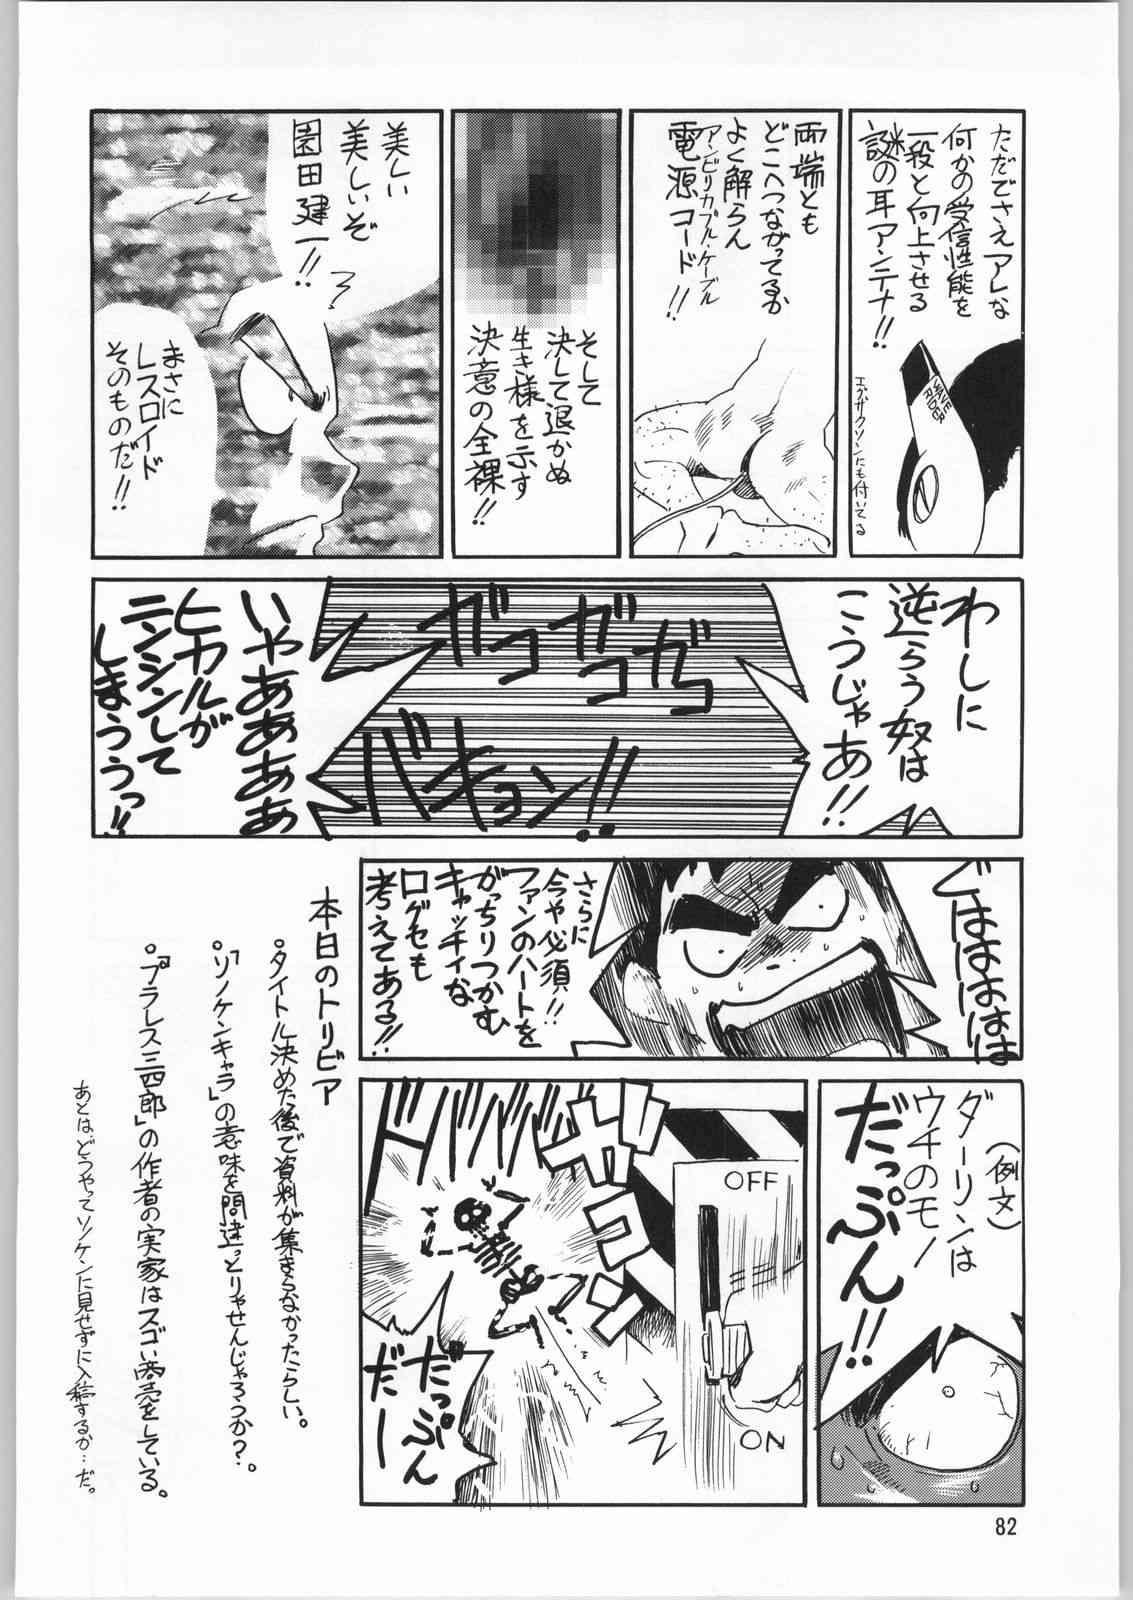 ただでさえアレな
何かの受信性能を
一段と向上させる
謎の耳アンテナ!!
WAVE
RIDER
エグザクソンにも付いてる
両端とも
どこへつながってるか
よく解らん
アンビリカブル・ケーブル
電源コード!!
そして
決して退かぬ
生き様を示す
決意の全裸!!
美しい
美しいぞ
園田健一!!
まさに
レスロイド
そのものだ!!
わしに
逆らう奴は
こうじゃあ!!
ガコ
ガコ
ガコ
バキョン!!
いやああああ
ヒカルが
ニンシンして
しまううっ!!
どはははははは
さらに
今や必須!!
ファンのハートを
がっちりつかむ
キャッチィな
口グセも
考えてある!!
(例文)
ダーリンは
ウチのモノ
だっぷん!!
OFF
ON
ガコン
ドババババ
だっぷん
だー
本日のトリビア
。タイトル決めた後で資料が集まらなかったらしい。
。「ソノケンキャラ」の意味を間違っとりゃせんじゃろうか?。
。「プラレス三四郎」の作者の実家はスゴい商売をしている。
あとはどうやってソノケンに見せずに入稿するか…だ。
82